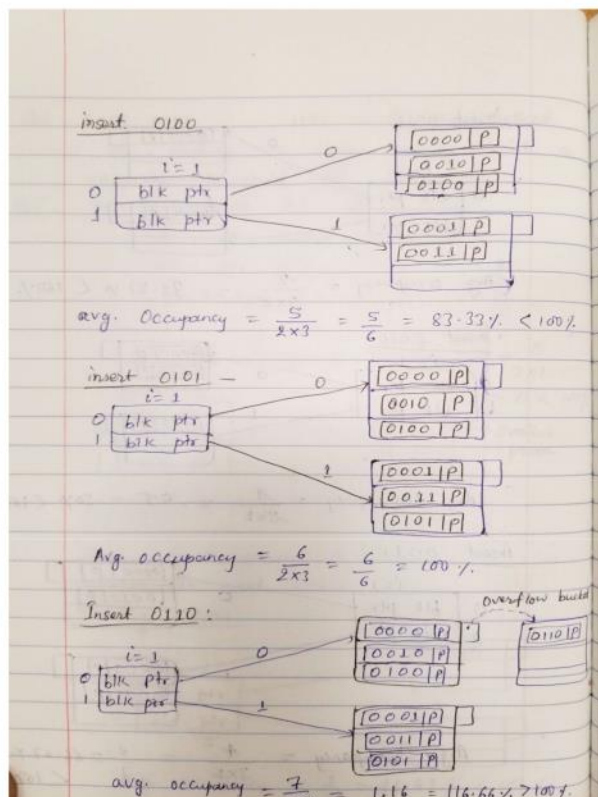 insert 0100
i = 1
0 blk ptr
1 blk ptr
0
1
0000 P
0010 P
0100 P
0001 P
0011 P
avg. Occupancy = 5/2×3 = 5/6 = 83.33% < 100%
insert 0101 –
i = 1
0 blk ptr
1 blk ptr
0
1
0000 P
0010 P
0100 P
0001 P
0011 P
0101 P
Avg. occupancy = 6/2×3 = 6/6 = 100%
Insert 0110 :
i = 1
0 blk ptr
1 blk ptr
0
1
0000 P
0010 P
0100 P
overflow
0110 P
0001 P
0011 P
0101 P
avg. occupancy = 7 = 1.16 = 116.66% > 100%